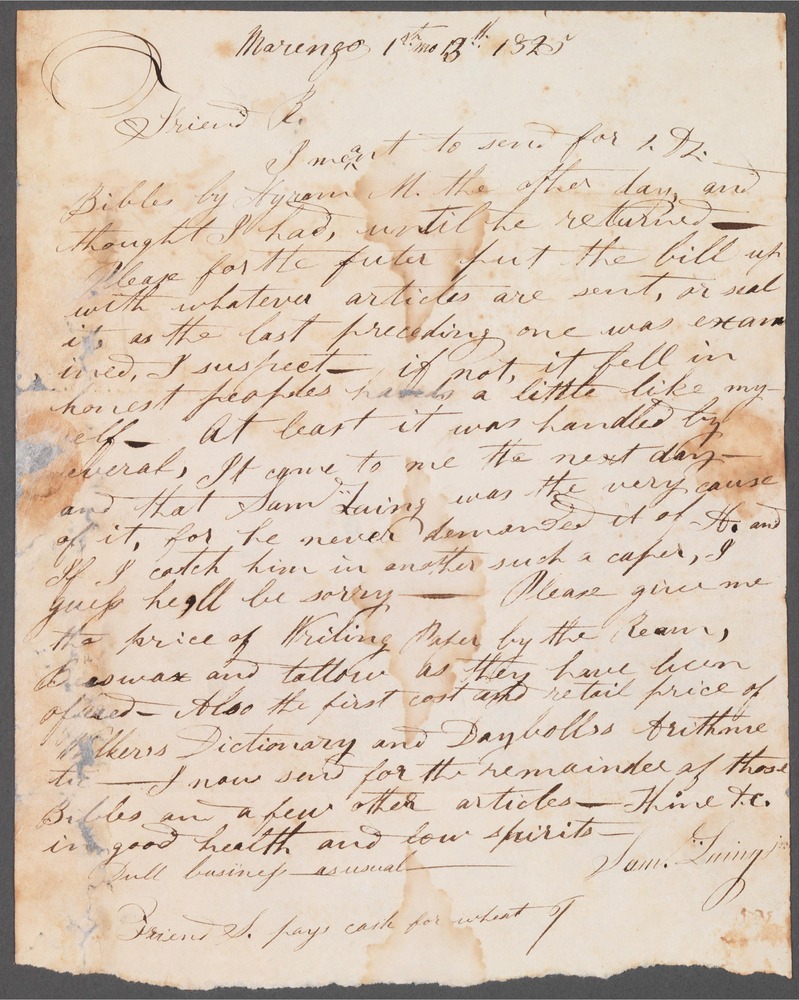 Marengo 1st mo 13th 1825
Friend R.
I meant to send for 1. Dz.
Bibles by Hyrom M. the other day, and
thought I had, until he returned —
Please for the futer put the bill up
with whatever articles are sent, or seal
it, as the last preceding one was exam
ined, I suspect — if not, it fell in
honest peoples hands a little like my-
elf — At least it was handled by
everal, It came to me the next day —
and that Sam Luing was the very cause
of it, for he never demanded it of H. and
If I catch him in another such a caper, I
guess he,ll be sorry — Please give me
the price of Writing Paper by the Ream,
Beaswax and tallow as they have been
offred — Also the first cost and retail price of
Walkerss Dictionary and Daybollss Arithme
tic — I now send for the remainder of those
Bibles and a few other articles — Thine &c.
in good health and low spirits —
Dull business as usual — Sam. Luing
Friend S. pays cash for wheat